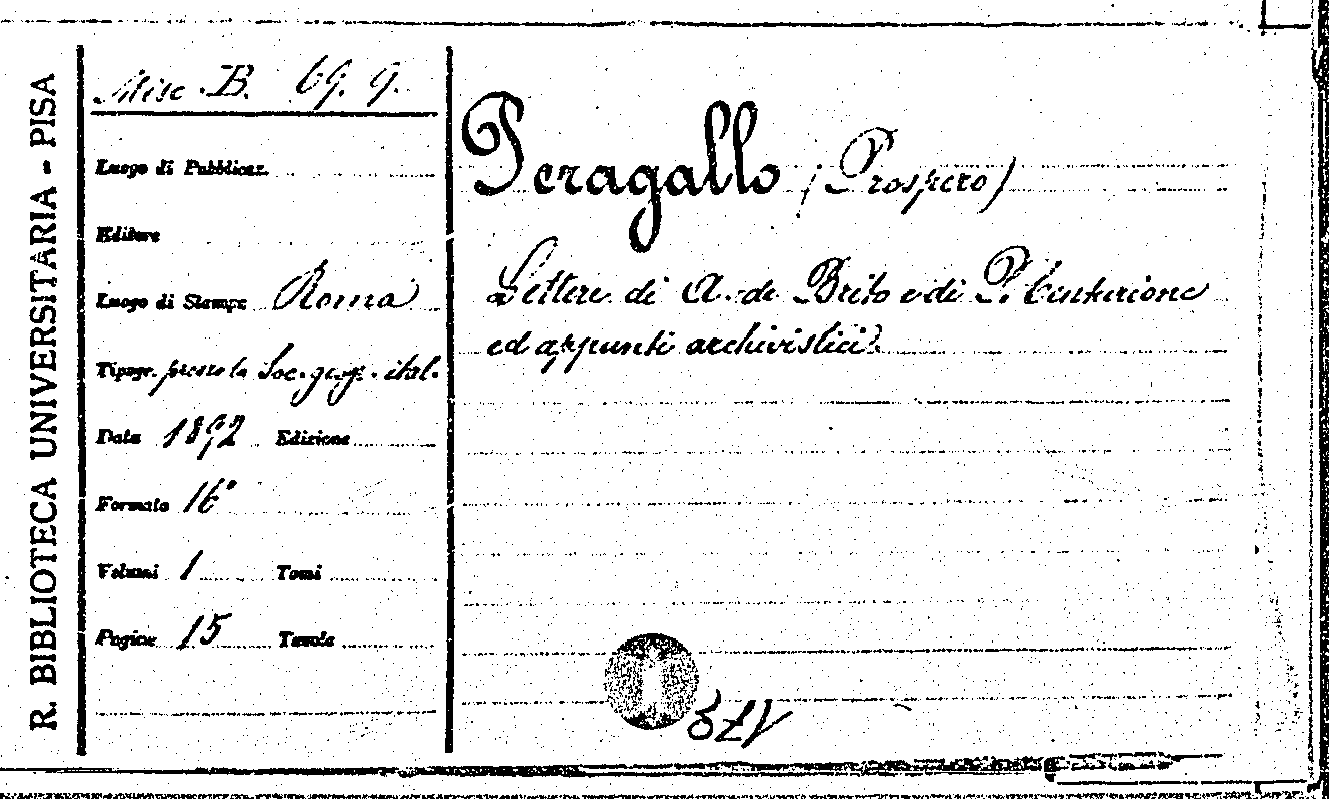 R. BIBLIOTECA UNIVERSITARIA - PISA
Misc. B. 69. 9.
Luogo di Pubblicaz.
Editore
Luogo di Stampa Roma
Tipogr. presso la Soc. geog. ital.
Data 1892 Edizione
Formato 16°
Volumi 1 Tomi
Pagine 15 Tavole
Peragallo (Prospero)
Lettere di A. de Brito e di P. Centurione
ed appunti archivistici.